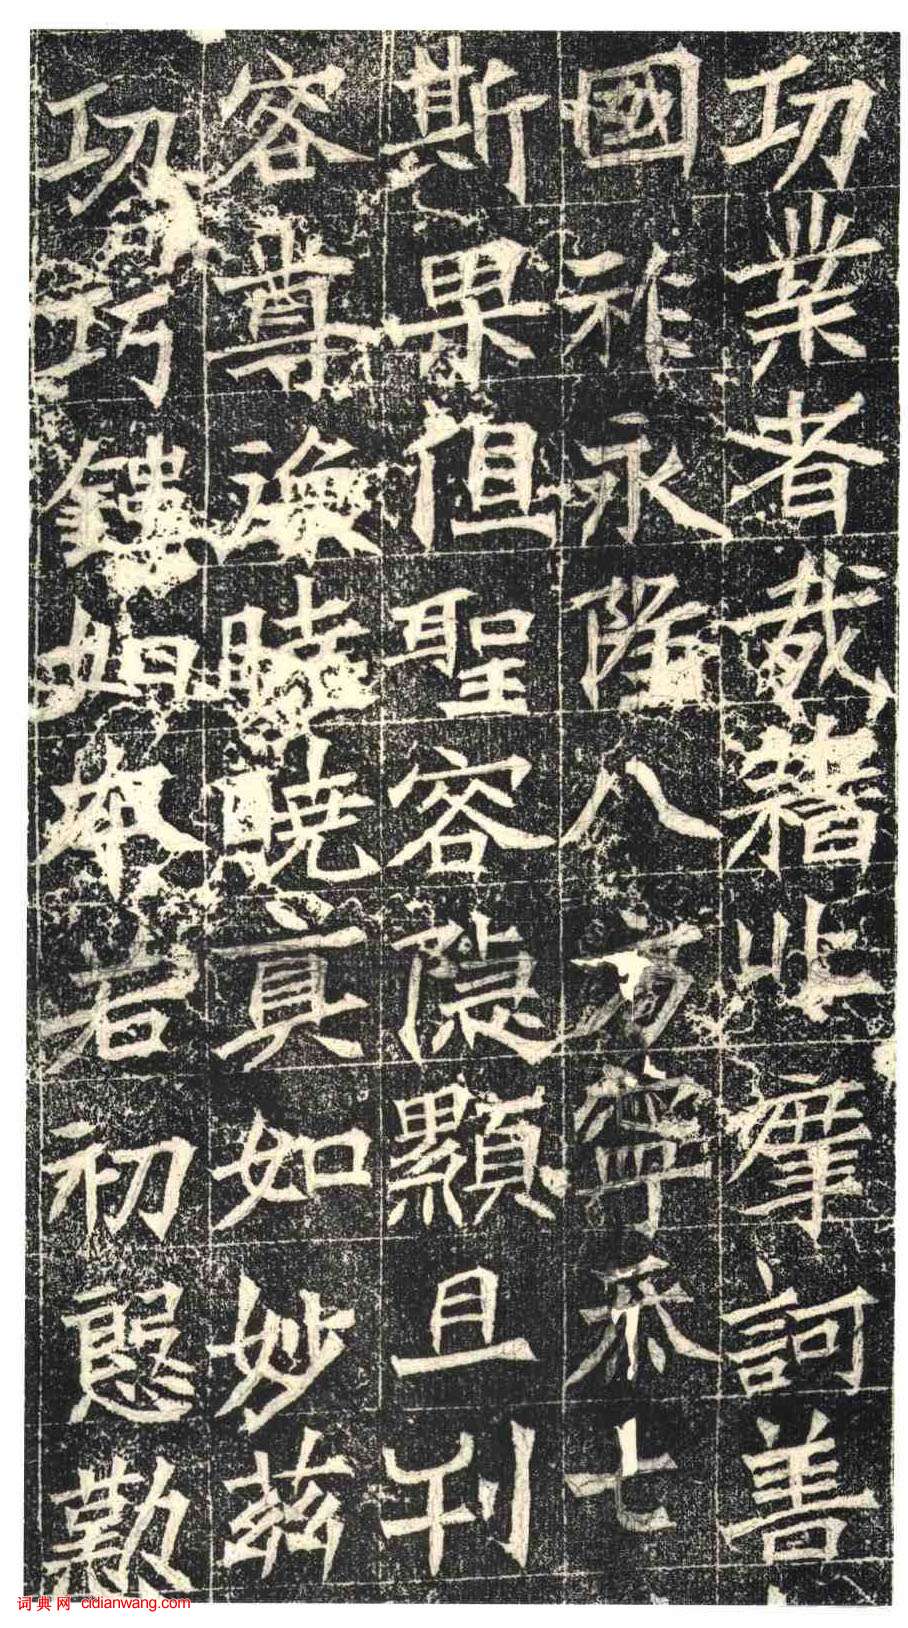 功業者哉藉此摩訶善
國祚永隆八方寧七
斯果但聖容隱顯且刊
容尊曉曉真如妙茲
功巧鏤如本若初慇懃
词典网 cidianwang.com